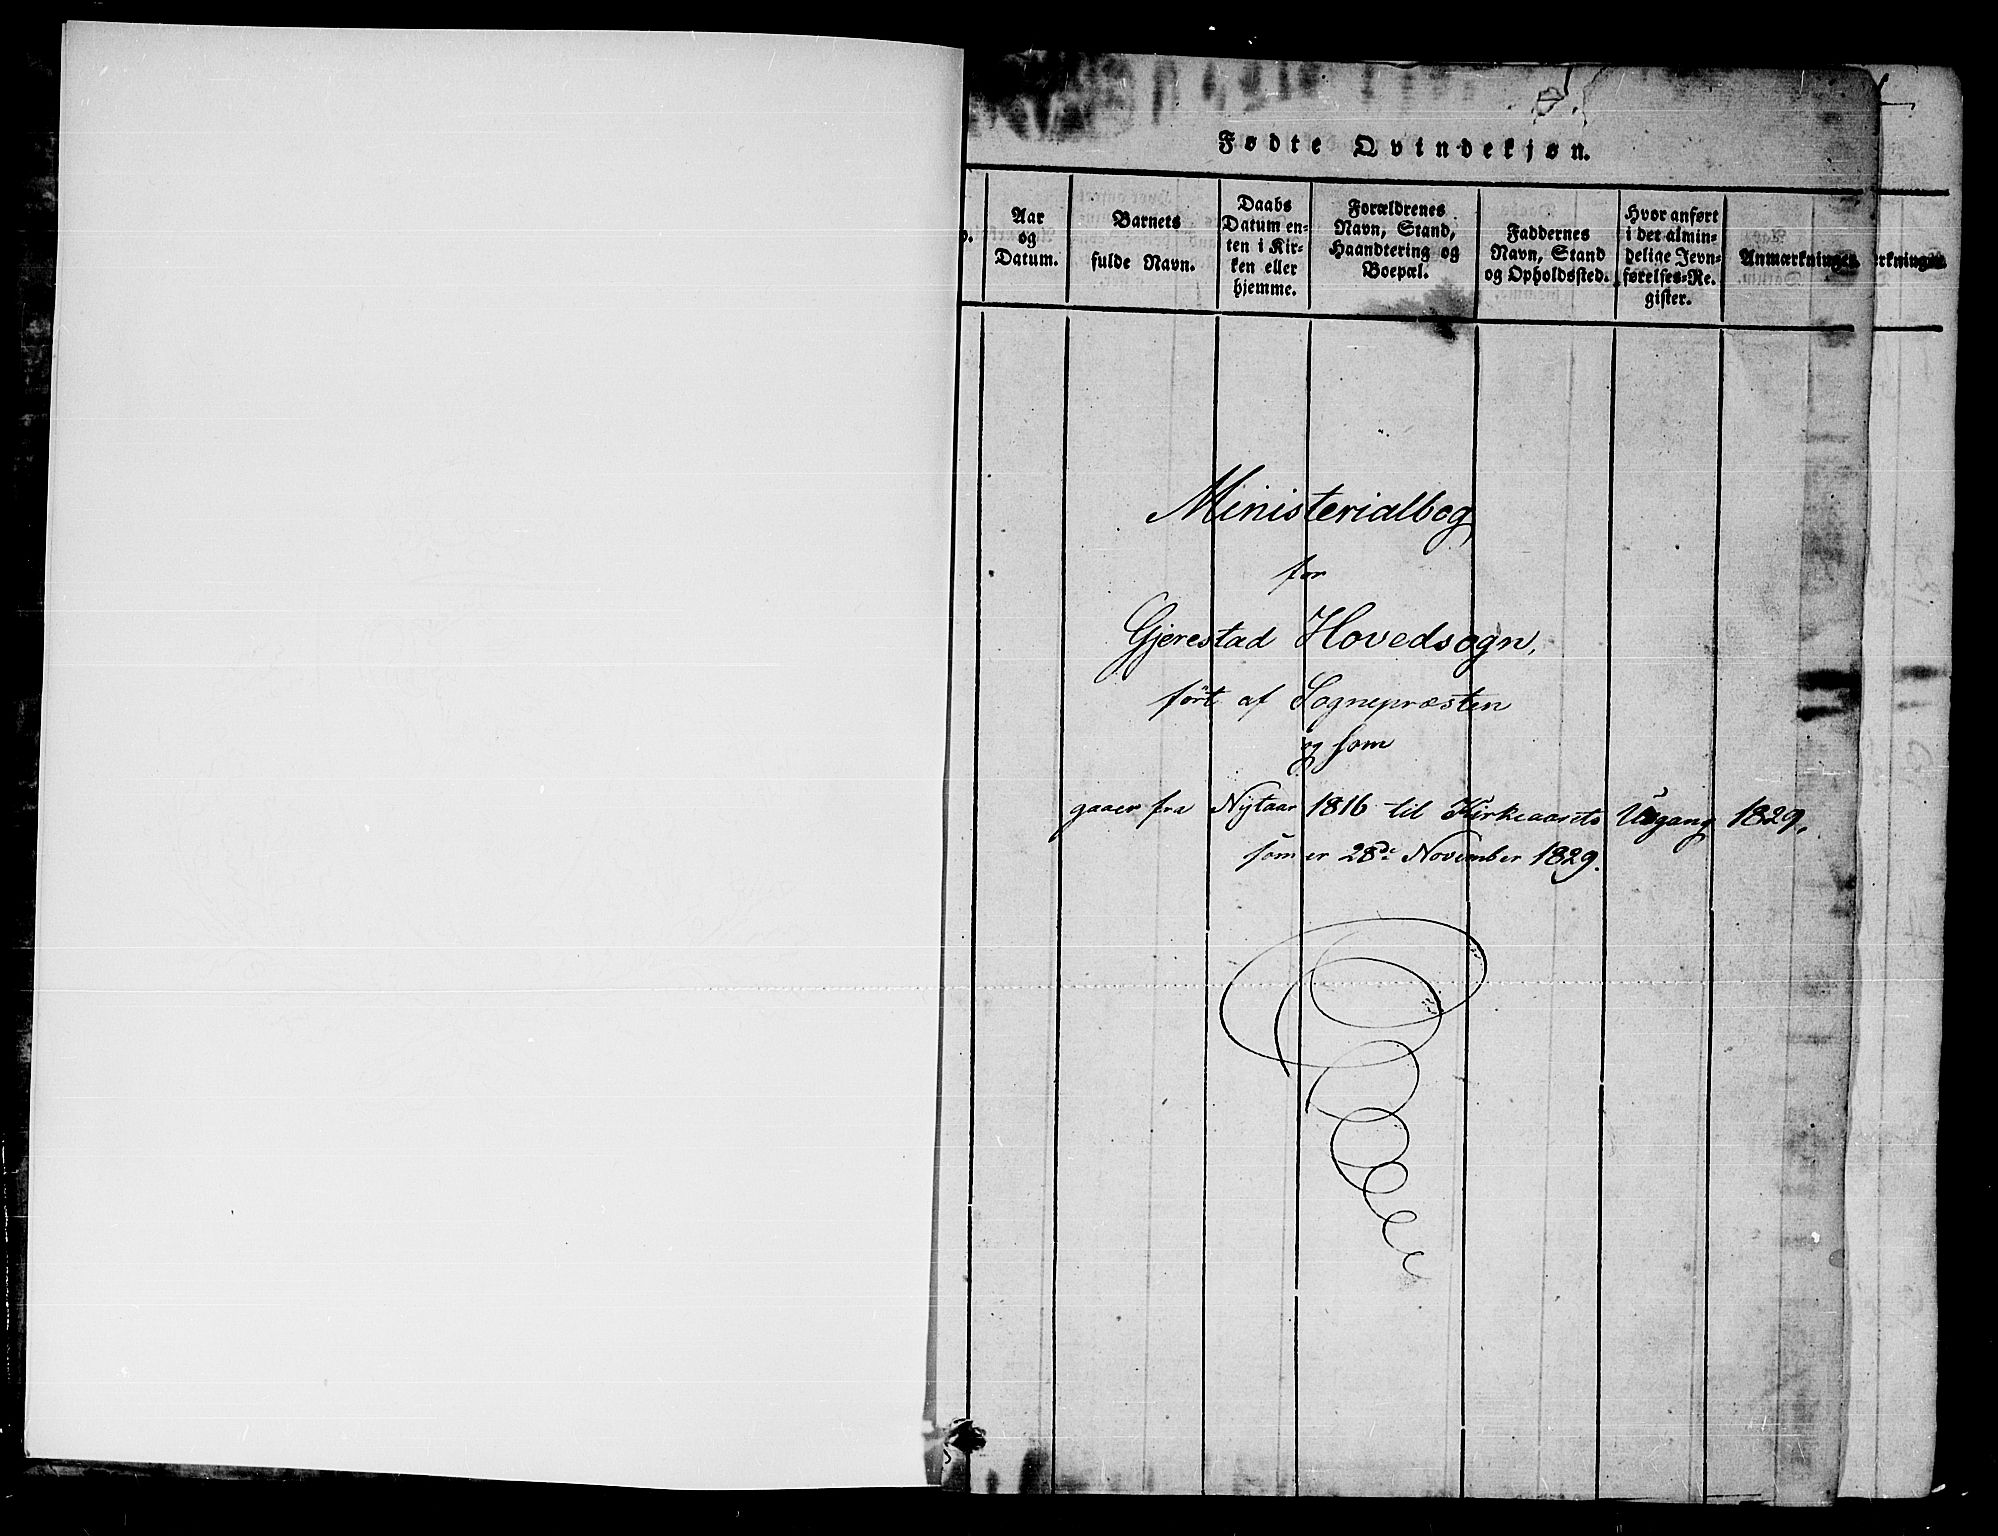 Fødte Qvindekjøn.
Aar
og
Datum.
Barnets
fulde Navn.
Daabs
Datum en-
ten i Kir-
ken eller
hjemme.
Forældrenes
Navn, Stand,
Haandtering og
Boepæl.
Faddernes
Navn, Stand
og Opholdssted.
Hvor anført
i det almin-
delige Jevn-
førelses-Re-
gister.
Anmærkninger
Ministerialbog
for
Gjerestad Hovedsogn,
ført af Sognepræsten
og som
gaaer fra Nytaar 1816 til Kirkeaarets Udgang 1829,
som er 28de November 1829.